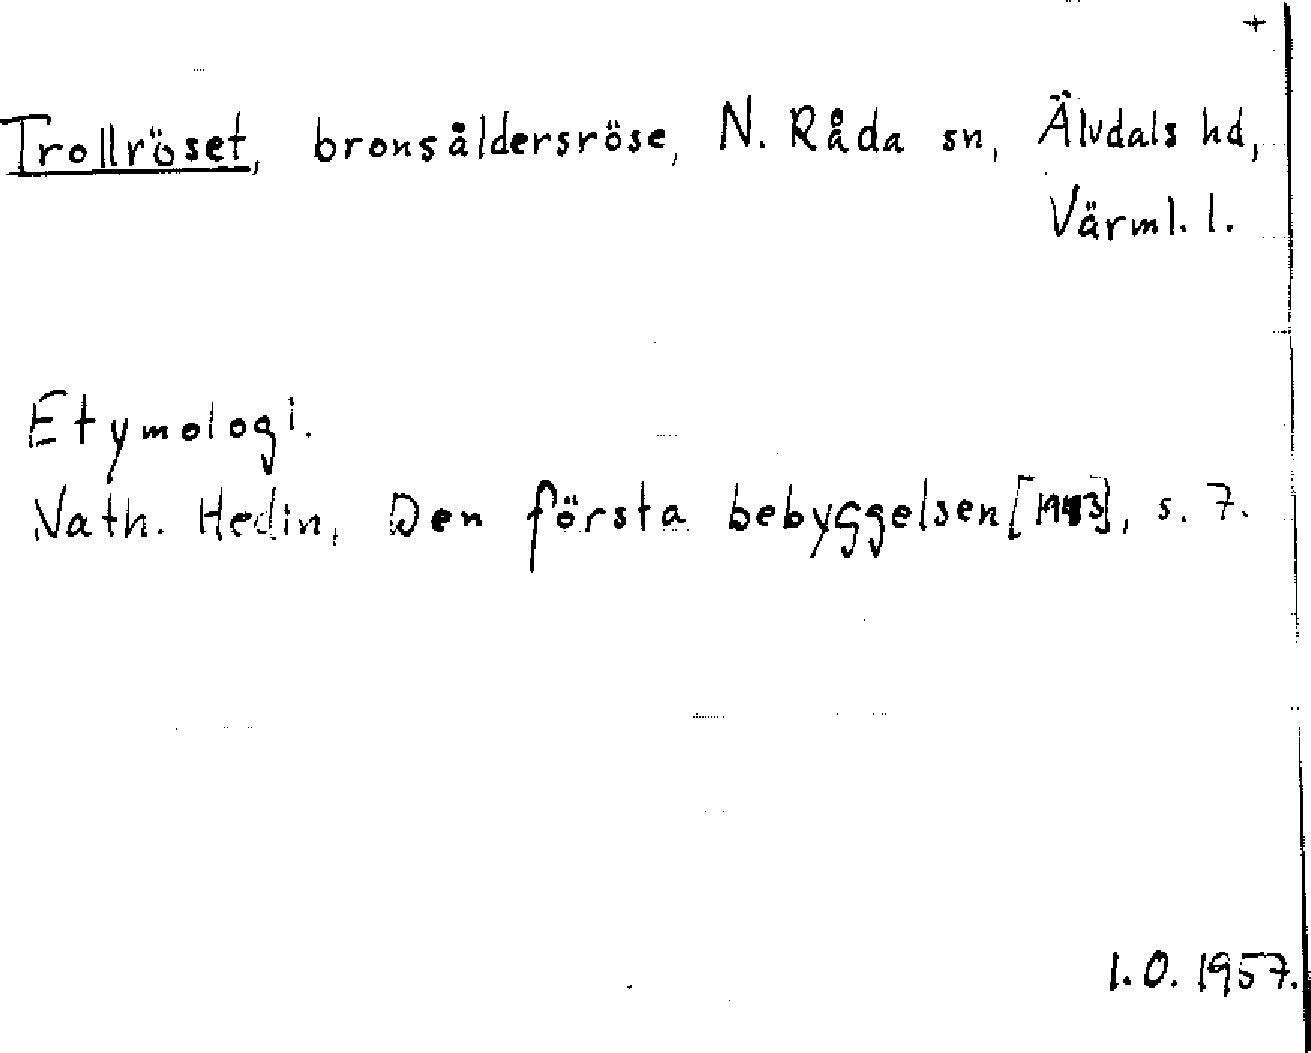 +
Trollröset, bronsåldersröse, N. Råda sn, Älvdals hd,
Värml. l.
Etymologi.
Nath. Hedin, Den första bebyggelsen [1943], s. 7.
I.O. 1957.